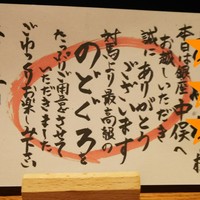 様
本日は銀座中俣へ
お越しいただき
誠にありがとう
ございます
対馬より最高級の
のどぐろを
たっぷりご用意させて
いただきました
ごゆっくりお楽しみ下さい